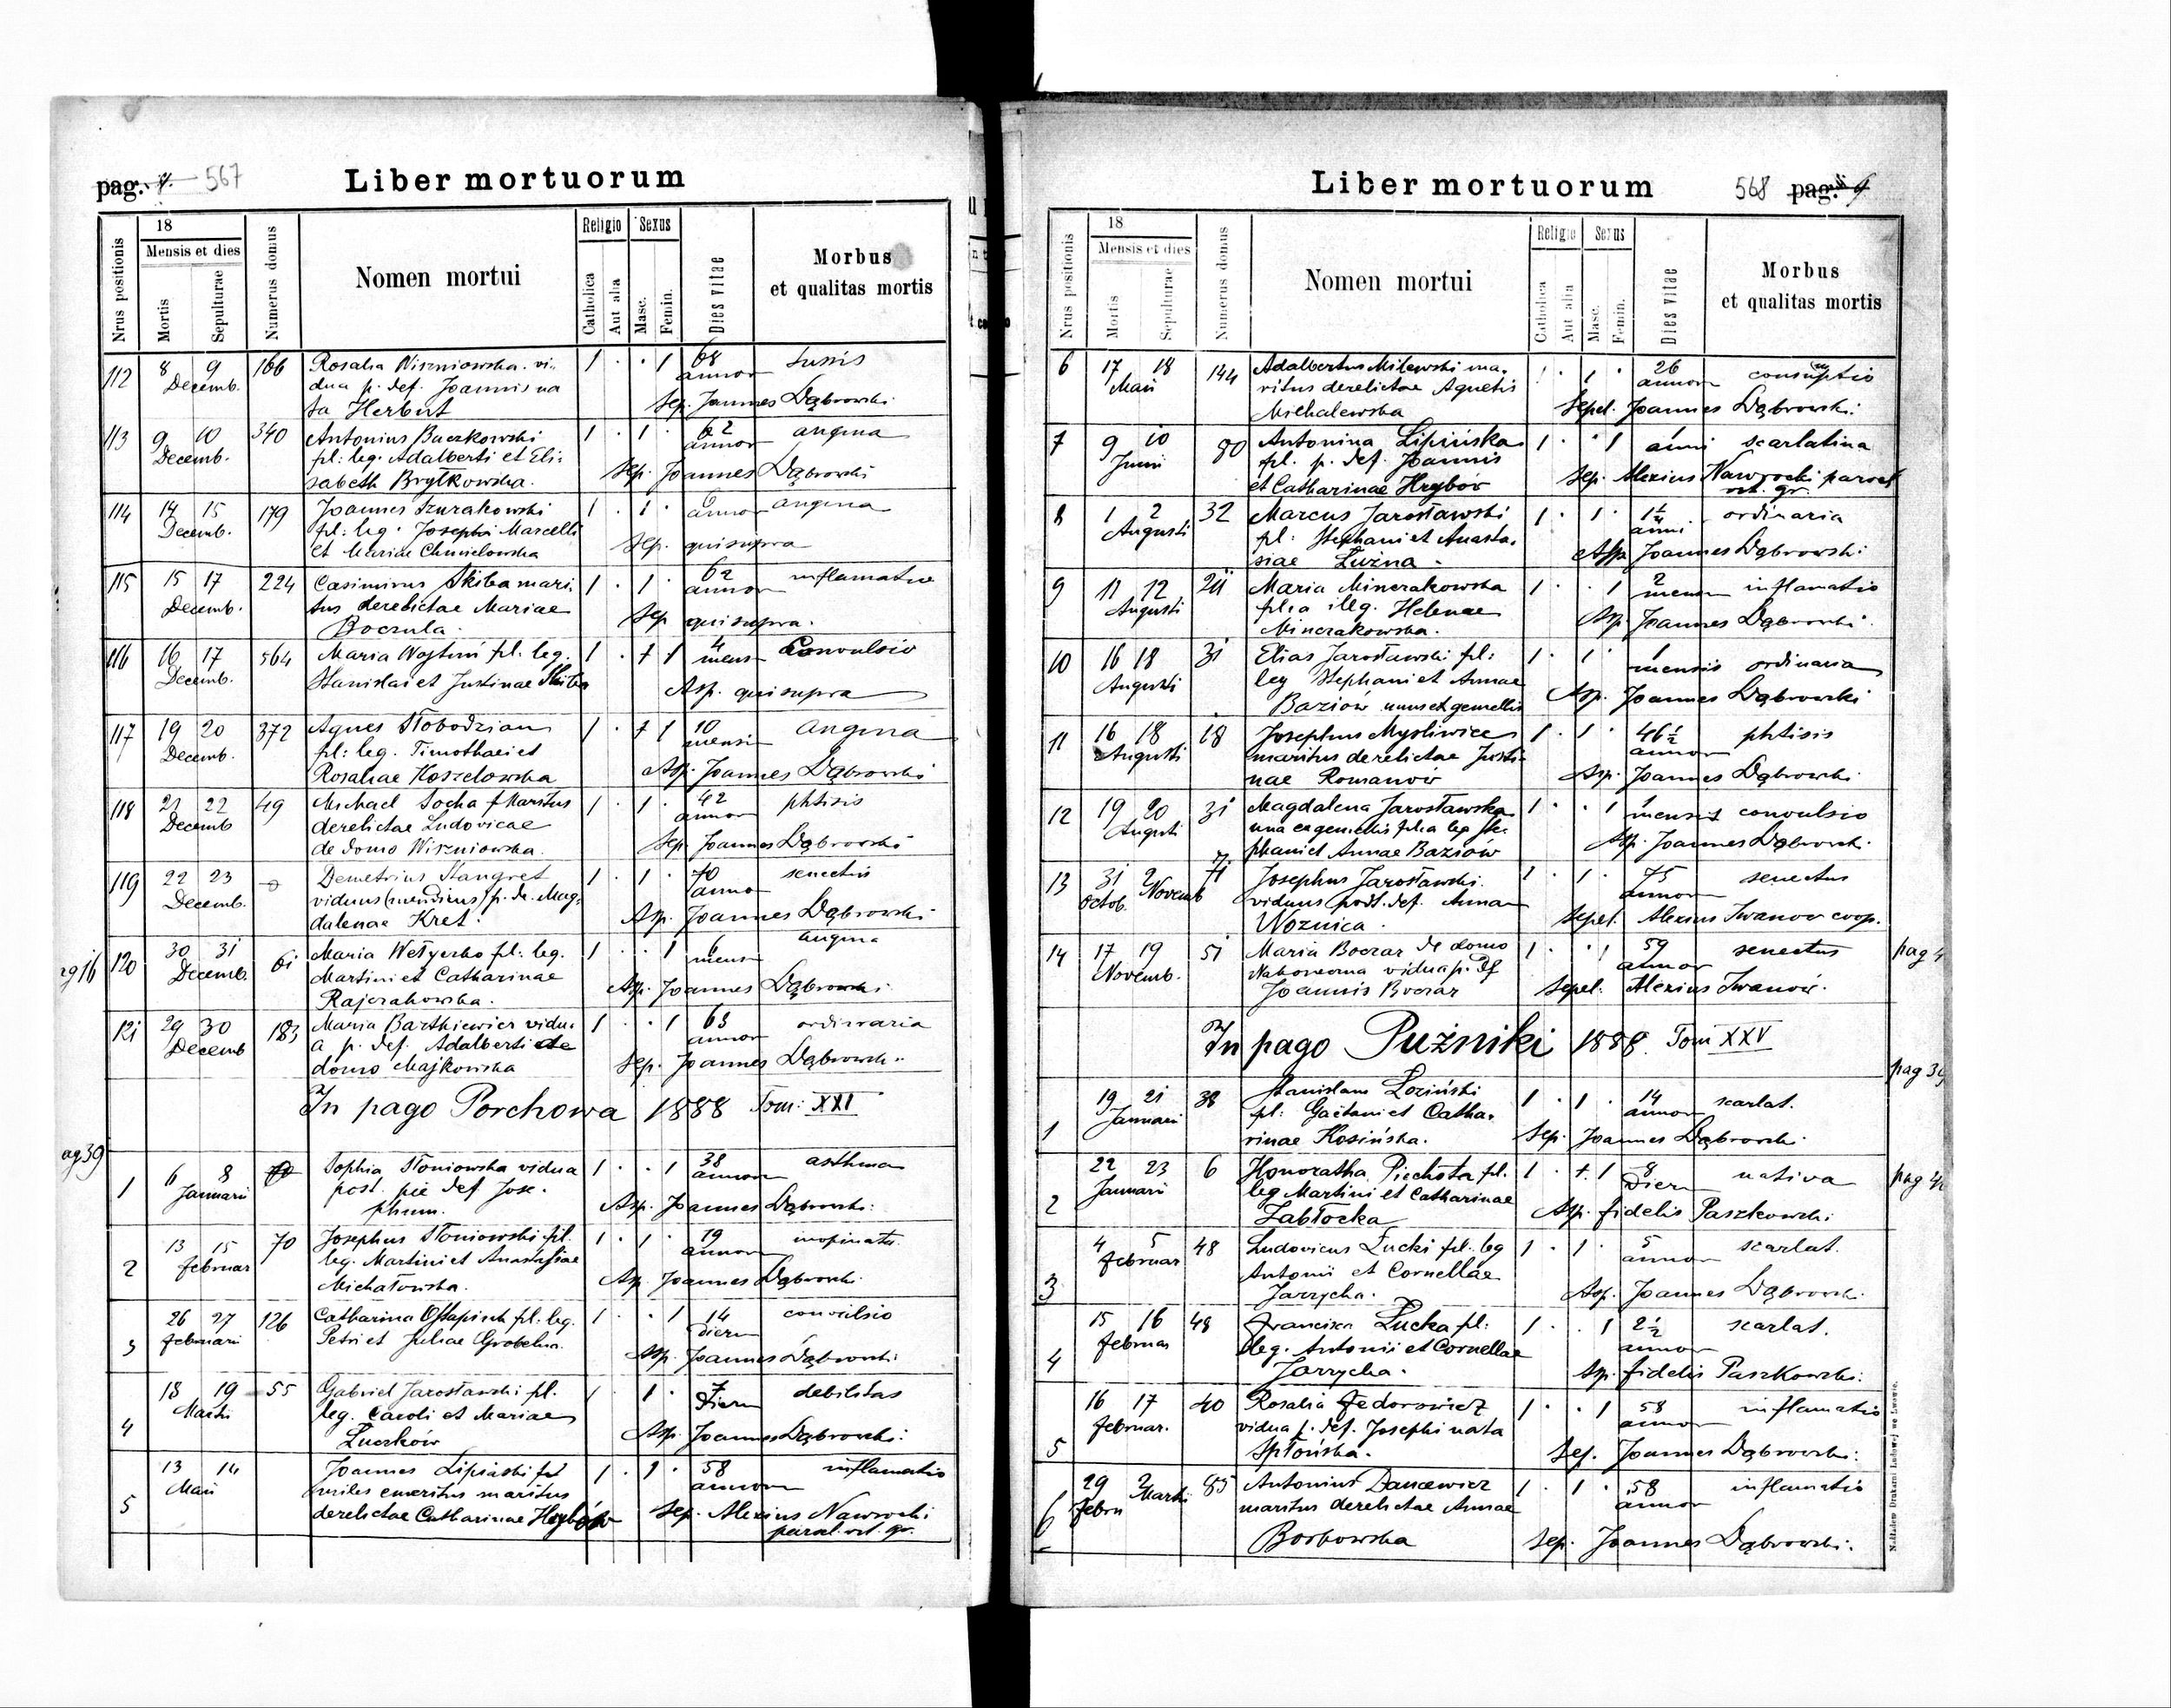 pag. 567
Liber mortuorum
Nrus positionis
18
Mensis et dies
Mortis
Sepulturae
Numerus domus
Nomen mortui
Religio
Catholica
Aut alia
Sexus
Masc.
Femin.
Dies vitae
Morbus
et qualitas mortis
112 8 9 166 Rosalia Wiszniowska vi- 1 . . 1 68 tussis
Decemb. dua p. def. Joannis na annor
ta Herbut Sep. Joannes Dąbrowski
113 9 10 340 Antonius Buczkowski 1 . 1 . 62 angina
Decemb. fil: leg. Adalberti et Eli- annor
sabeth Brytkowska. Sep. Joannes Dąbrowski
114 14 15 179 Joannes Szurakowski 1 . 1 . 6 angina
Decemb. fil: leg. Josephi Marcelli annor
et Mariae Chmielowska Sep. qui supra
115 15 17 224 Casimirus Skiba mari- 1 . 1 . 62 inflamatio
Decemb. tus derelictae Mariae annor
Boczula. Sep qui supra.
116 16 17 564 Maria Wojtuń fil. leg. 1 . 1 4 Convulsio
Decemb. Stanislai et Justinae Skiba mens
Asp. qui supra
117 19 20 372 Agnes Słobodzian 1 . 1 10 angina
Decemb. fil: leg. Timothaei et mensi
Rosaliae Koszelowska Asp. Joannes Dąbrowski
118 21 22 49 Michael Socha maritus 1 . 1 . 42 phtisis
Decemb derelictae Ludovicae annor
de domo Wiszniowska. Sep. Joannes Dąbrowski
119 22 23 Demetrius Stangret 1 . 1 . 70 senectus
Decemb. viduus (mendicus) p. de. Mag- anno
dalenae Kret. Asp. Joannes Dąbrowski
120 30 31 61 Maria Wetyczko fil: leg. 1 . . 1 6 angina
Decemb. Martini et Catharinae mens
Rajczakowska. Asp. Joannes Dąbrowski
121 29 30 183 Maria Bartkiewicz vidu- 1 . . 1 63 ordinaria
Decemb a p. def. Adalberti de annor
domo Majkowska Sep. Joannes Dąbrowski
In pago Porchowa 1888 Tom: XXI
ag 39
1 6 8 Sophia Słoniowska vidua 1 . . 1 38 asthma
Januarii post. pie def Jose- annor
phum. Asp. Joannes Dąbrowski:
2 13 15 70 Josephus Słoniowski fil. 1 . 1 . 19 inopinata
Februar leg. Martini et Anastasiae annor
Michałowska. Asp. Joannes Dąbrowski.
3 26 27 126 Catharina Ostapiuk fil: leg. 1 . . 1 14 convulsio
Februarii Petri et Juliae Grobelna. dierum
Asp. Joannes Dąbrowski
4 18 19 55 Gabriel Jarosławski fil. 1 . 1 . 7 debilitas
Martii leg. Caroli et Mariae dierum
Łuczków Asp. Joannes Dąbrowski:
5 13 14 Joannes Lipiński 1 . 1 . 58 inflamatio
Maii miles emeritus maritus annor
derelictae Catharinae Hrybów Sep. Alexius Nawrocki
paroch. rit. gr.
Liber mortuorum
568 pag. 9
Nrus positionis
18
Mensis et dies
Mortis
Sepulturae
Numerus domus
Nomen mortui
Religio
Catholica
Aut alia
Sexus
Masc.
Femin.
Dies vitae
Morbus
et qualitas mortis
6 17 18 144 Adalbertus Milewski ma- 1 . 1 . 26 consumptio
Maii ritus derelictae Agnetis annor
Michalewska Sepel. Joannes Dąbrowski:
7 9 10 80 Antonina Lipińska 1 . . 1 anni scarlatina
Junii fil. p. def. Joannis
et Catharinae Hrybov Sep. Alexius Nawrocki paroch
rit. gr.
8 1 2 32 Marcus Jarosławski 1 . 1 . ordinaria
Augusti fil: Stephani et Anasta- anni
siae Łuzna. Asp. Joannes Dąbrowski:
9 11 12 Maria Minczakowska 1 . . 1 2 inflamatio
Augusti filia illeg. Helenae mens
Minczakowska. Asp. Joannes Dąbrowski.
10 16 18 31 Elias Jarosławski fil: 1 . 1 1 ordinaria
Augusti leg Stephani et Annae mensis
Baziów unus et gemellis Asp. Joannes Dąbrowski
11 16 18 18 Josephus Myśliwiec 1 . 1 . 46½ phtisis
Augusti maritus derelictae Justi- annor
nae Romanów Asp. Joannes Dąbrowski
12 19 20 31 Magdalena Jarosławska 1 . . 1 1 convulsio
Augusti una ex gemellis filia leg Ste- mensis
phani et Annae Baziów Asp. Joannes Dąbrowsk.
13 31 2 71 Josephus Jarosławski. 1 . 1 . 75 senectus
Octob. Novemb viduus post. def. Anna annor
Woznica. Sepel. Alexius Iwanow coop.
14 17 19 51 Maria Boczar de domo 1 . . 1 59 senectus pag 4
Novemb. Nakoneczna vidua p. df annor
Joannis Boczar Sepel. Alexius Iwanów.
In pago Puźniki 1888. Tom XXV
pag 39
1 19 21 38 Stanislaus Łoziński 1 . 1 . 14 scarlat.
Januarii fil: Gaetani et Catha- annor
rinae Kosińska. Sep. Joannes Dąbrowski.
2 22 23 6 Honoratha Piechota fil. 1 . 1 8 nativa
Januarii leg Martini et Catharinae dierum
Zabłocka Asp. fidelis Paszkowski
3 4 5 48 Ludovicus Łucki fil. leg 1 . 1 . 5 scarlat.
Februar Antonii et Cornellae annor
Jarzycha. Asp. Joannes Dąbrowsk.
4 15 16 48 Francisca Łucka fil: 1 . . 1 2½ scarlat.
Februar leg. Antonii et Cornellae annor
Jarzycha. Asp. fidelis Paszkowski:
5 16 17 40 Rosalia Fedorowicz 1 . . 1 58 inflamatio
Februar. vidua p. def. Josephi nata annor
Spłońska. Sep. Joannes Dąbrowski:
6 29 2 85 Antonius Dancewicz 1 . 1 . 58 inflamatio
Febru Martii maritus derelictae Annae annor
Borkowska Sep. Joannes Dąbrowski.
Nakładem Drukarni Ludowej we Lwowie.